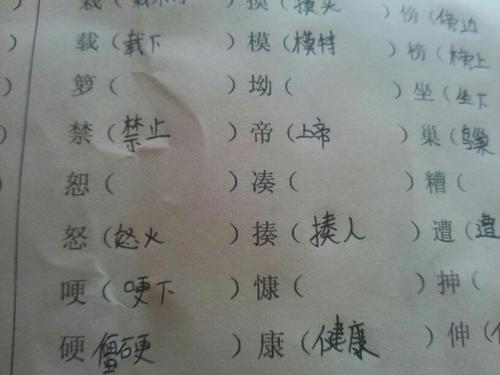 摸头 ) 傍边
) 载 ( 载下 ) 模 ( 模特 ) 榜 ( 榜上
) 箩 ( ) 坳 ( ) 坐 ( 坐下
) 禁 ( 禁止 ) 帝 ( 上帝 ) 巢 ( 鸟巢
) 恕 ( ) 凑 ( ) 糟 (
) 怒 ( 怒火 ) 揍 ( 揍人 ) 遭 ( 遭
哽 ( 哽下 ) 慷 ( ) 抻 (
硬 僵硬 ) 康 ( 健康 ) 伸 (